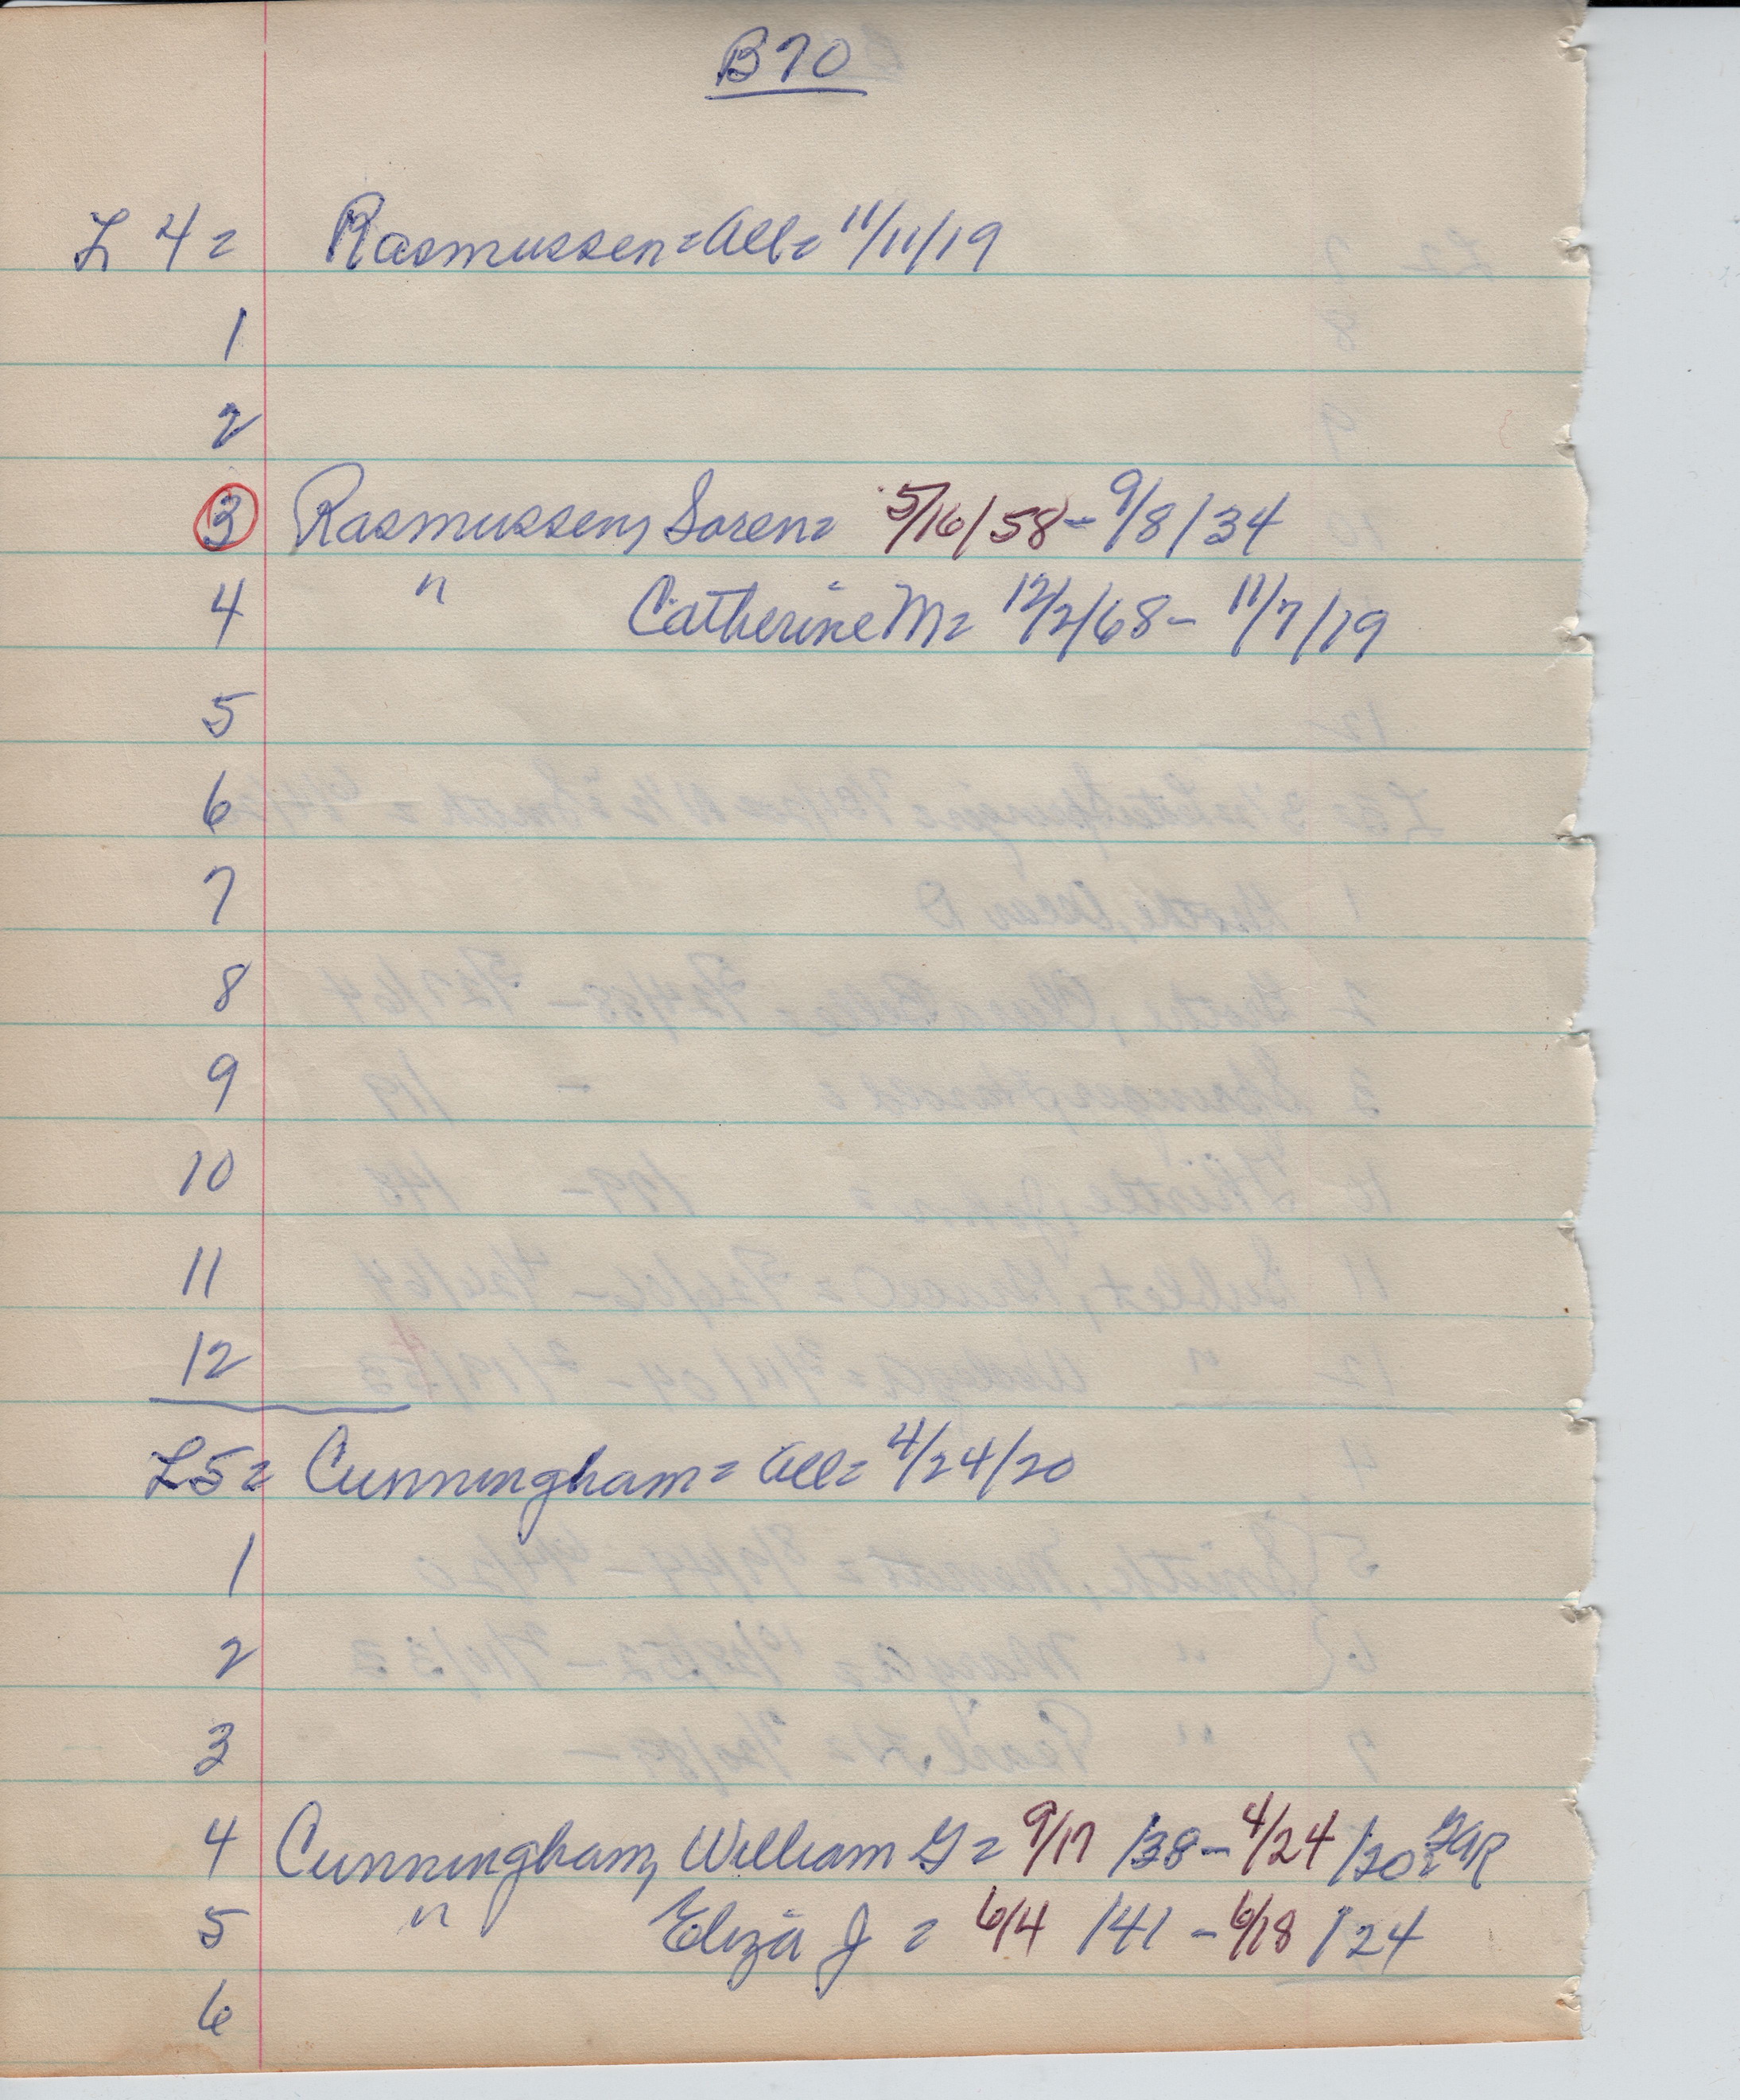 B70
L 4 = Rasmussen = All = 11/11/19
1
2
3 Rasmussen, Soren = 5/16/58 - 9/8/34
4 " Catherine M = 12/2/68 - 11/7/19
5
6
7
8
9
10
11
12
L5 = Cunningham = All = 4/24/20
1
2
3
4 Cunningham, William G = 9/17/38 - 4/24/20 = GAR
5 " Eliza J = 6/4/41 - 6/18/24
6